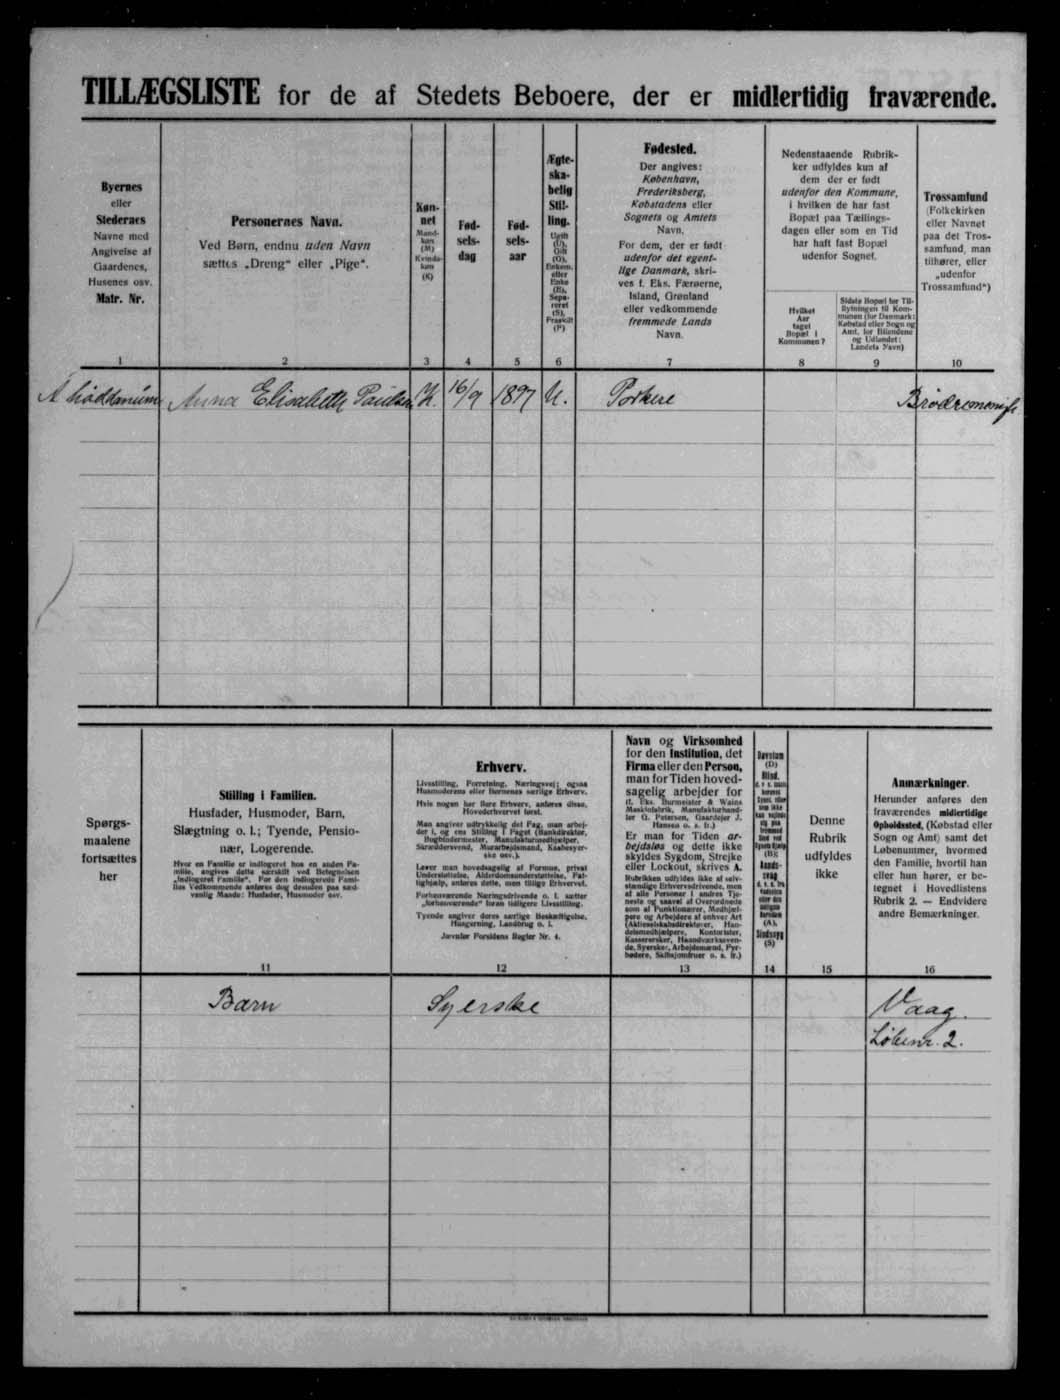 TILLÆGSLISTE for de af Stedets Beboere, der er midlertidig fraværende.
Byernes
eller
Stedernes
Navne med
Angivelse af
Gaardenes,
Husenes osv.
Matr. Nr.
1
Personernes Navn.
Ved Børn, endnu uden Navn
sættes „Dreng“ eller „Pige“.
2
Køn-
net
Mand-
køn
(M)
Kvinde-
køn
(K)
3
Fød-
sels-
dag
4
Fød-
sels-
aar
5
Ægte-
ska-
belig
Stil-
ling.
Ugift
(U),
Gift
(G),
Enkem.
eller
Enke
(E),
Sepa-
reret
(S),
Fraskilt
(F)
6
Fødested.
Der angives:
København,
Frederiksberg,
Købstadens eller
Sognets og Amtets
Navn.
For dem, der er født
udenfor det egent-
lige Danmark, skri-
ves f. Eks. Færøerne,
Island, Grønland
eller vedkommende
fremmede Lands
Navn.
7
Nedenstaaende Rubrik-
ker udfyldes kun af
dem der er født
udenfor den Kommune,
i hvilken de har fast
Bopæl paa Tællings-
dagen eller som en Tid
har haft fast Bopæl
udenfor Sognet.
Hvilket
Aar
taget
Bopæl i
Kommunen?
8
Sidste Bopæl før Til-
flytningen til Kom-
munen (for Danmark:
Købstad eller Sogn og
Amt, for Bilandene
og Udlandet:
Landets Navn)
9
Trossamfund
(Folkekirken
eller Navnet
paa det Tros-
samfund, man
tilhører, eller
„udenfor
Trossamfund“)
10
Anna Elisabeth Poulsen K. 16/9 1897 U. Porkere
Spørgs-
maalene
fortsættes
her
Stilling i Familien.
Husfader, Husmoder, Barn,
Slægtning o. l.; Tyende, Pensio-
nær, Logerende.
Hvor en Familie er indlogeret hos en anden Fa-
milie, angives dette særskilt ved Betegnelsen
„indlogeret Familie“. For den indlogerede Fami-
lies Vedkommende anføres dog desuden paa sæd-
vanlig Maade: Husfader, Husmoder osv.
11
Erhverv.
Livsstilling, Forretning, Næringsvej; ogsaa
Husmoderens eller Børnenes særlige Erhverv.
Hvis nogen har flere Erhverv, anføres disse,
Hovederhvervet først.
Man angiver udtrykkelig det Fag, man arbej-
der i, og ens Stilling i Faget (Bankdirektør,
Bogbindermester, Manufakturmedhjælper,
Skræddersvend, Murarbejdsmand, Kasbesyer-
ske osv.).
Lever man hovedsagelig af Formue, privat
Understøttelse, Aldersdomsunderstøttelse, Fat-
tighjælp, anføres dette, men tillige Erhvervet.
Forhenværende Næringsdrivende o. l. sætter
„forhenværende“ foran tidligere Livsstilling.
Tyende angiver deres særlige Beskæftigelse,
Husgerning, Landbrug o. l.
Jævnfør Forsidens Regler Nr. 4.
12
Navn og Virksomhed
for den Institution, det
Firma eller den Person,
man for Tiden hoved-
sagelig arbejder for
(f. Eks. Burmeister & Wains
Maskinfabrik, Manufakturhand-
ler G. Petersen, Gaardejer J.
Hansen o. s. fr.)
Er man for Tiden ar-
bejdsløs og dette ikke
skyldes Sygdom, Strejke
eller Lockout, skrives A.
Rubrikken udfyldes ikke af selv-
stændige Erhvervsdrivende, men
af alle Personer i andres Tje-
neste og saavel af Overordnede
som af Funktionærer, Medhjæl-
pere og Arbejdere af enhver Art
(Aktieselskabsdirektører, Han-
delsmedhjælpere, Kontorister,
Kasserersker, Haandværkssven-
de, Syersker, Arbejdsmænd, Fyr-
bødere, Skibsjomfruer o. s. fr.)
13
Døvstum
(D)
Blind.
14
Denne
Rubrik
udfyldes
ikke
15
Anmærkninger.
Herunder anføres den
fraværendes midlertidige
Opholdssted, (Købstad eller
Sogn og Amt) samt det
Løbenummer, hvormed
den Familie, hvortil han
eller hun hører, er be-
tegnet i Hovedlistens
Rubrik 2. — Endvidere
andre Bemærkninger.
16
Barn Syerske Vaag.
Løbenr. 2.